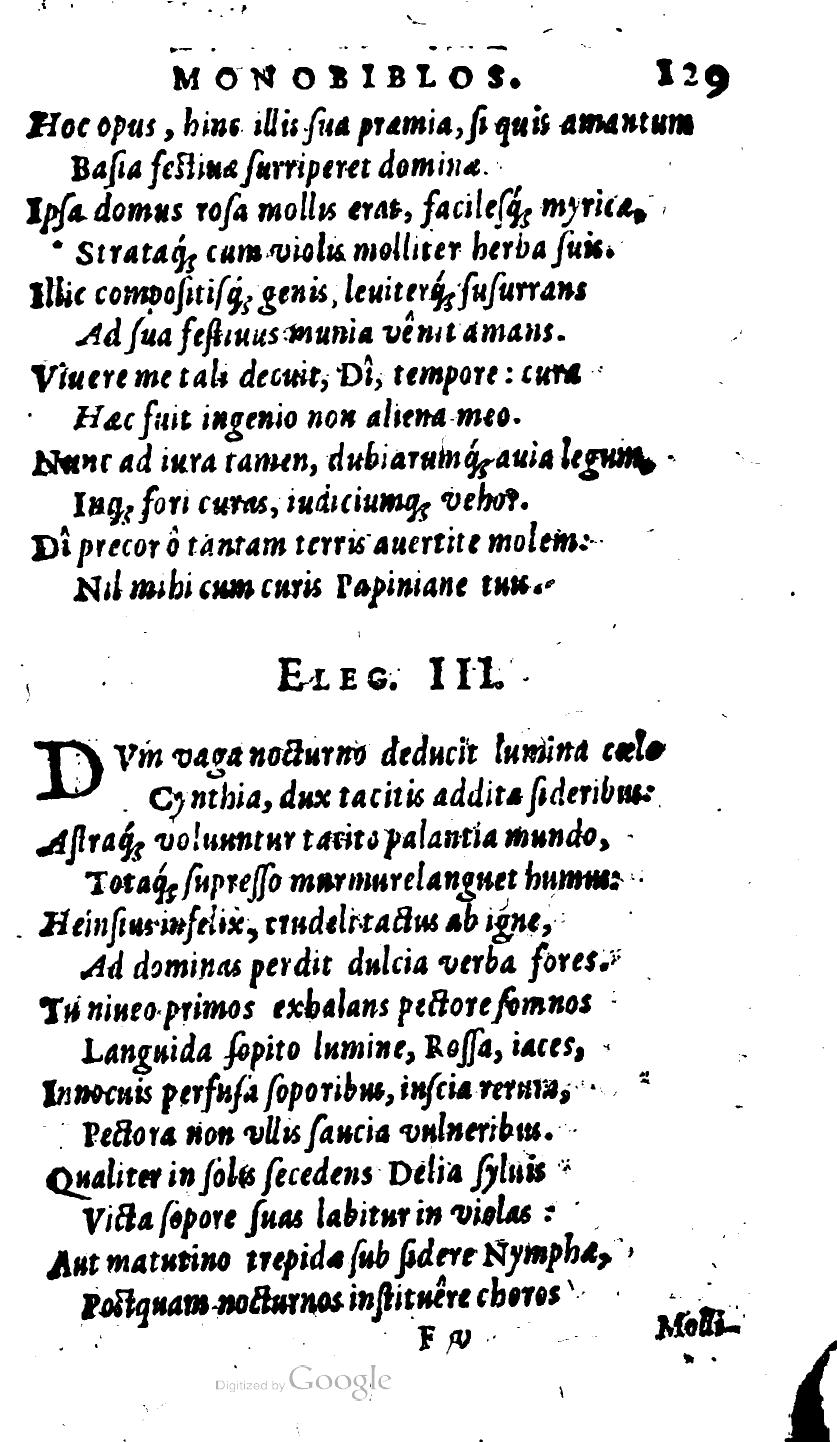 MONOBIBLOS. 129
Hoc opus, hinc illis sua præmia, si quis amantum
Basia festinæ surriperet dominæ.
Ipsa domus rosa mollis erat, facilesq́; myricæ,
Strataq́; cum violis molliter herba suis.
Illic compositisq́; genis, leuiterq́; susurrans
Ad sua festiuus munia vênit amans.
Viuere me tali decuit, Dî, tempore: cura
Hæc fuit ingenio non aliena meo.
Nunc ad iura tamen, dubiarumq́; auia legum,
Inq; fori curas, iudiciumq; vehor.
Dî precor ô tantam terris auertite molem:
Nil mihi cum curis Papiniane tuis.
ELEG. III.
DVm vaga nocturno deducit lumina cælo
Cynthia, dux tacitis addita sideribus:
Astraq́; voluuntur tacito palantia mundo,
Totaq́; supresso murmure languet humus:
Heinsius infelix, crudeli tactus ab igne,
Ad dominas perdit dulcia verba fores.
Tu niueo primos exhalans pectore somnos
Languida sopito lumine, Rossa, iaces,
Innocuis perfusa soporibus, inscia rerum,
Pectora non vllis saucia vulneribus.
Qualiter in solis secedens Delia syluis
Victa sopore suas labitur in violas:
Aut matutino trepidæ sub sidere Nymphæ,
Postquam nocturnos instituêre choros
F v Molli-
Digitized by Google